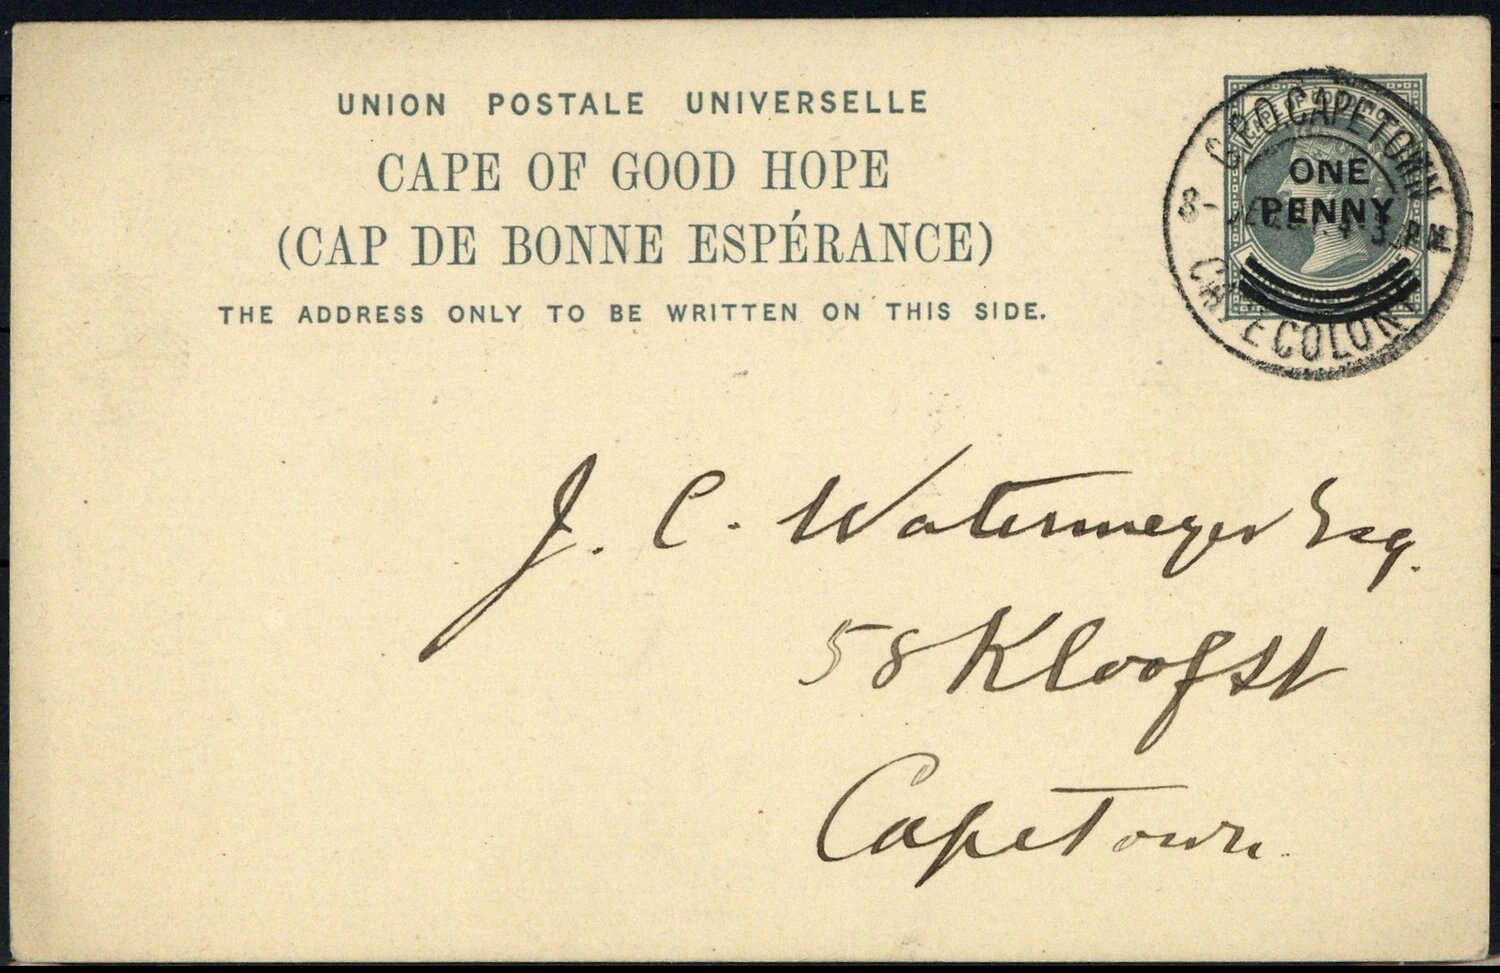 UNION POSTALE UNIVERSELLE
CAPE OF GOOD HOPE
(CAP DE BONNE ESPÉRANCE)
THE ADDRESS ONLY TO BE WRITTEN ON THIS SIDE.
G.P.O. CAPE TOWN
ONE
PENNY
CAPE COLONY
J. C. Watermeyer Esq.
58 Kloof St
Cape Town.